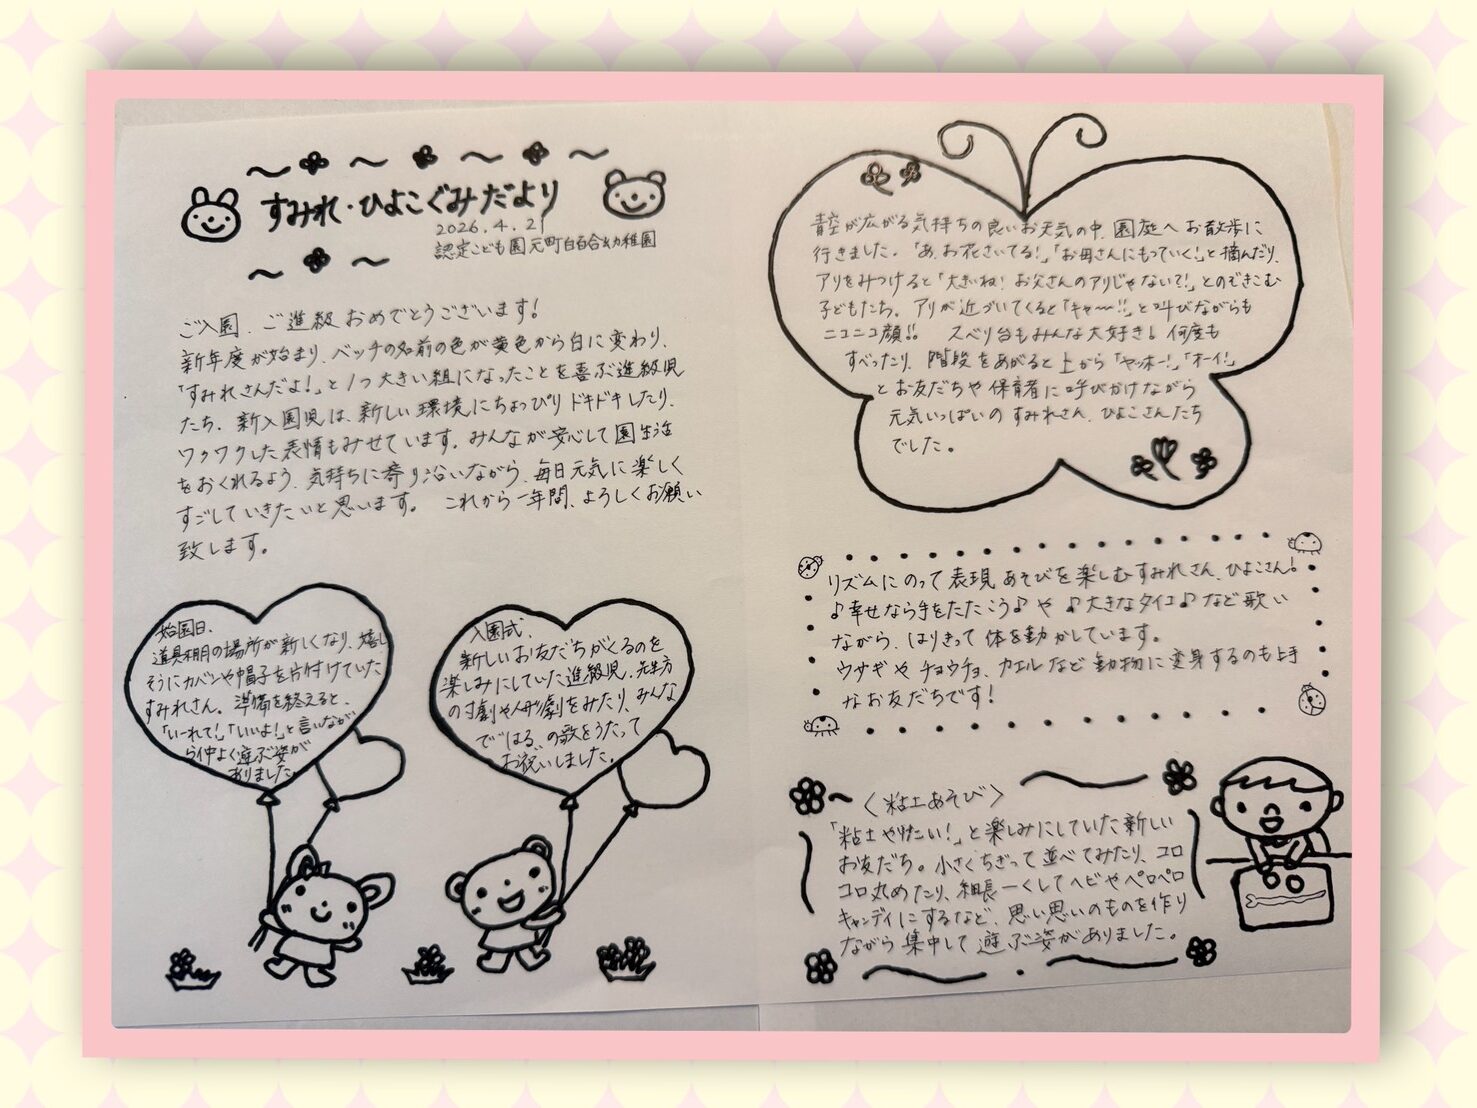 すみれ・ひよこぐみだより
2026.4.21
認定こども園元町白百合幼稚園
ご入園、ご進級おめでとうございます！
新年度が始まり、バッチの名前の色が黄色から白に変わり、
「すみれさんだよ！」と1つ大きい組になったことを喜ぶ進級児
たち。新入園児は、新しい環境にちょっぴりドキドキしたり、
ワクワクした表情もみせています。みんなが安心して園生活
をおくれるよう、気持ちに寄り沿いながら、毎日元気に楽しく
すごしていきたいと思います。これから一年間、よろしくお願い
致します。
始園日、
道具棚の場所が新しくなり、嬉し
そうにカバンや帽子を片付けていた
すみれさん。準備を終えると、
「いーれて！」「いいよ！」と言いなが
ら仲よく遊ぶ姿が
ありました。
入園式、
新しいお友だちがくるのを
楽しみにしていた進級児。先生方
の寸劇や人形劇をみたり、みんな
で“はる”の歌をうたって
お祝いしました。
青空が広がる気持ちの良いお天気の中、園庭へお散歩に
行きました。「あ、お花さいてる！」「お母さんにもっていく！」と摘んだり、
アリをみつけると「大きいね！お父さんのアリじゃない？！」とのぞきこむ
子どもたち。アリが近づいてくると「キャ〜！！」と叫びながらも
ニコニコ顔！！ スベリ台もみんな大好き！何度も
すべったり、階段をあがると上から「ヤッホー！」「オーイ！」
とお友だちや保育者に呼びかけながら
元気いっぱいのすみれさん、ひよこさんたち
でした。
リズムにのって表現あそびを楽しむすみれさん、ひよこさん！
♪幸せなら手をたたこう♪や♪大きなタイコ♪など歌い
ながら、はりきって体を動かしています。
ウサギやチョウチョ、カエルなど動物に変身するのも上手
なお友だちです！
〈粘土あそび〉
「粘土やりたい！」と楽しみにしていた新しい
お友だち。小さくちぎって並べてみたり、コロ
コロ丸めたり、細長ーくしてヘビやペロペロ
キャンディにするなど、思い思いのものを作り
ながら集中して遊ぶ姿がありました。